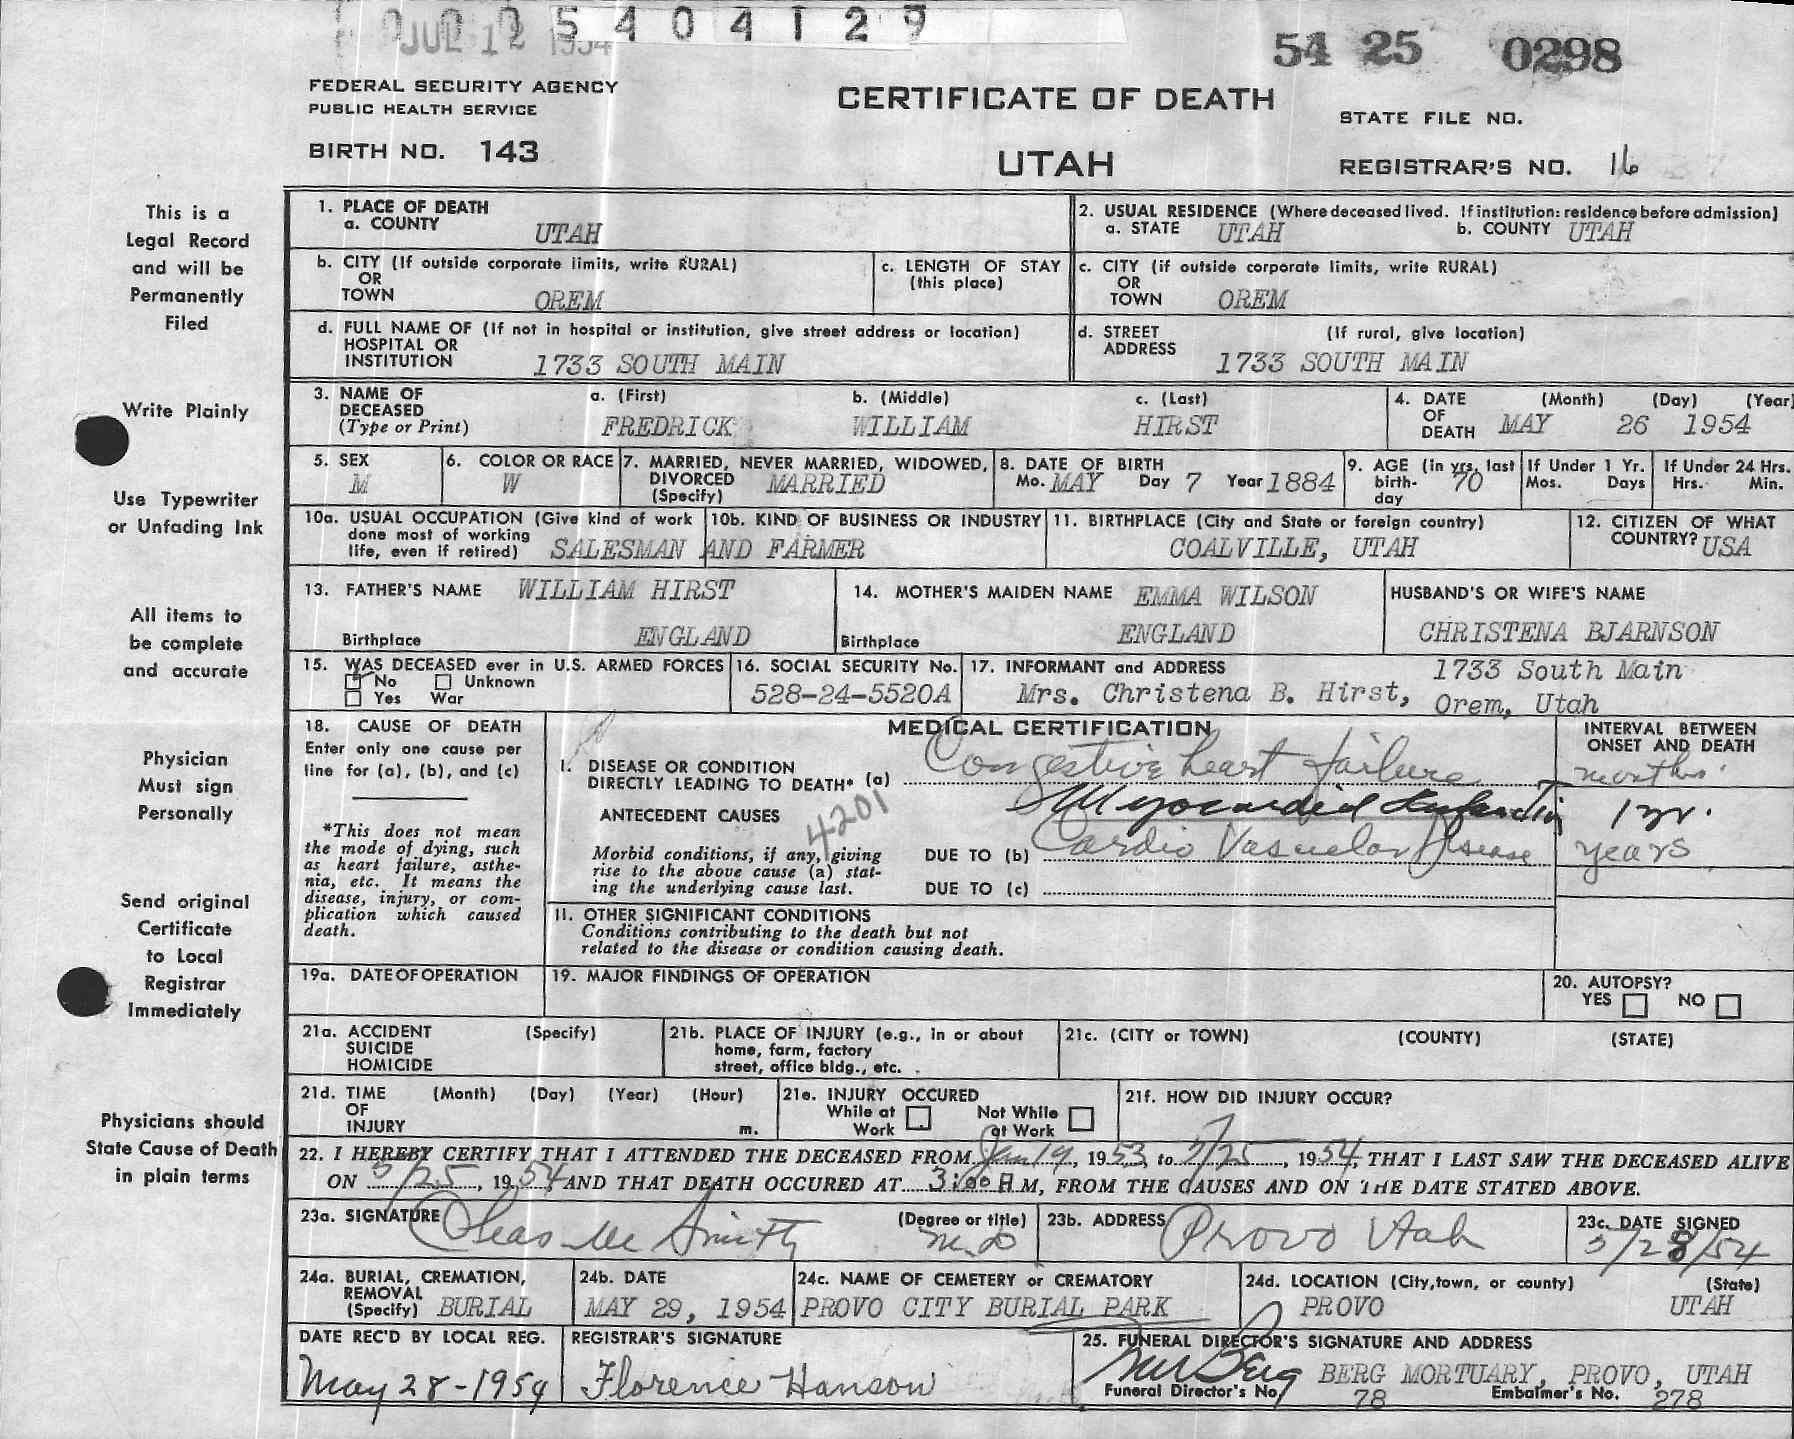 0025404129
JUL 12 1954
54 25 0298
FEDERAL SECURITY AGENCY
PUBLIC HEALTH SERVICE
CERTIFICATE OF DEATH
STATE FILE NO.
BIRTH NO. 143
UTAH
REGISTRAR'S NO. 16
This is a
Legal Record
and will be
Permanently
Filed
Write Plainly
Use Typewriter
or Unfading Ink
All items to
be complete
and accurate
Physician
Must sign
Personally
Send original
Certificate
to Local
Registrar
Immediately
Physicians should
State Cause of Death
in plain terms
1. PLACE OF DEATH
a. COUNTY UTAH
2. USUAL RESIDENCE (Where deceased lived. If institution: residence before admission)
a. STATE UTAH b. COUNTY UTAH
b. CITY (If outside corporate limits, write RURAL)
OR
TOWN OREM
c. LENGTH OF STAY
(this place)
c. CITY (if outside corporate limits, write RURAL)
OR
TOWN OREM
d. FULL NAME OF (If not in hospital or institution, give street address or location)
HOSPITAL OR
INSTITUTION 1733 SOUTH MAIN
d. STREET (If rural, give location)
ADDRESS 1733 SOUTH MAIN
3. NAME OF a. (First) b. (Middle) c. (Last)
DECEASED
(Type or Print) FREDRICK WILLIAM HIRST
4. DATE (Month) (Day) (Year)
OF
DEATH MAY 26 1954
5. SEX
M
6. COLOR OR RACE
W
7. MARRIED, NEVER MARRIED, WIDOWED,
DIVORCED MARRIED
(Specify)
8. DATE OF BIRTH
Mo. MAY Day 7 Year 1884
9. AGE (in yrs. last
birth- 70
day
If Under 1 Yr.
Mos. Days
If Under 24 Hrs.
Hrs. Min.
10a. USUAL OCCUPATION (Give kind of work
done most of working
life, even if retired) SALESMAN AND FARMER
10b. KIND OF BUSINESS OR INDUSTRY
11. BIRTHPLACE (City and State or foreign country)
COALVILLE, UTAH
12. CITIZEN OF WHAT
COUNTRY? USA
13. FATHER'S NAME WILLIAM HIRST
Birthplace ENGLAND
14. MOTHER'S MAIDEN NAME EMMA WILSON
Birthplace ENGLAND
HUSBAND'S OR WIFE'S NAME
CHRISTENA BJARNSON
15. WAS DECEASED ever in U.S. ARMED FORCES
No Unknown
Yes War
16. SOCIAL SECURITY No.
528-24-5520A
17. INFORMANT and ADDRESS 1733 South Main
Mrs. Christena B. Hirst, Orem, Utah
18. CAUSE OF DEATH
Enter only one cause per
line for (a), (b), and (c)
*This does not mean
the mode of dying, such
as heart failure, asthe-
nia, etc. It means the
disease, injury, or com-
plication which caused
death.
MEDICAL CERTIFICATION
INTERVAL BETWEEN
ONSET AND DEATH
I. DISEASE OR CONDITION
DIRECTLY LEADING TO DEATH* (a) Congestive heart failure months
ANTECEDENT CAUSES Myocardial Infarction 1 yr.
4201
Morbid conditions, if any, giving
rise to the above cause (a) stat-
ing the underlying cause last.
DUE TO (b) Cardio Vascular Disease years
DUE TO (c)
II. OTHER SIGNIFICANT CONDITIONS
Conditions contributing to the death but not
related to the disease or condition causing death.
19a. DATE OF OPERATION
19. MAJOR FINDINGS OF OPERATION
20. AUTOPSY?
YES NO
21a. ACCIDENT (Specify)
SUICIDE
HOMICIDE
21b. PLACE OF INJURY (e.g., in or about
home, farm, factory
street, office bldg., etc.
21c. (CITY or TOWN) (COUNTY) (STATE)
21d. TIME (Month) (Day) (Year) (Hour)
OF
INJURY m.
21e. INJURY OCCURED
While at Work Not While at Work
21f. HOW DID INJURY OCCUR?
22. I HEREBY CERTIFY THAT I ATTENDED THE DECEASED FROM Jan 19, 1953, to 5/25, 1954, THAT I LAST SAW THE DECEASED ALIVE
ON 5/25, 1954 AND THAT DEATH OCCURED AT 3:00 A M, FROM THE CAUSES AND ON THE DATE STATED ABOVE.
23a. SIGNATURE Chas M Smith (Degree or title) M.D
23b. ADDRESS Provo Utah
23c. DATE SIGNED
5/28/54
24a. BURIAL, CREMATION,
REMOVAL
(Specify) BURIAL
24b. DATE
MAY 29, 1954
24c. NAME OF CEMETERY or CREMATORY
PROVO CITY BURIAL PARK
24d. LOCATION (City, town, or county) (State)
PROVO UTAH
DATE REC'D BY LOCAL REG.
May 28-1954
REGISTRAR'S SIGNATURE
Florence Hanson
25. FUNERAL DIRECTOR'S SIGNATURE AND ADDRESS
Berg BERG MORTUARY, PROVO, UTAH
Funeral Director's No. 78 Embalmer's No. 278